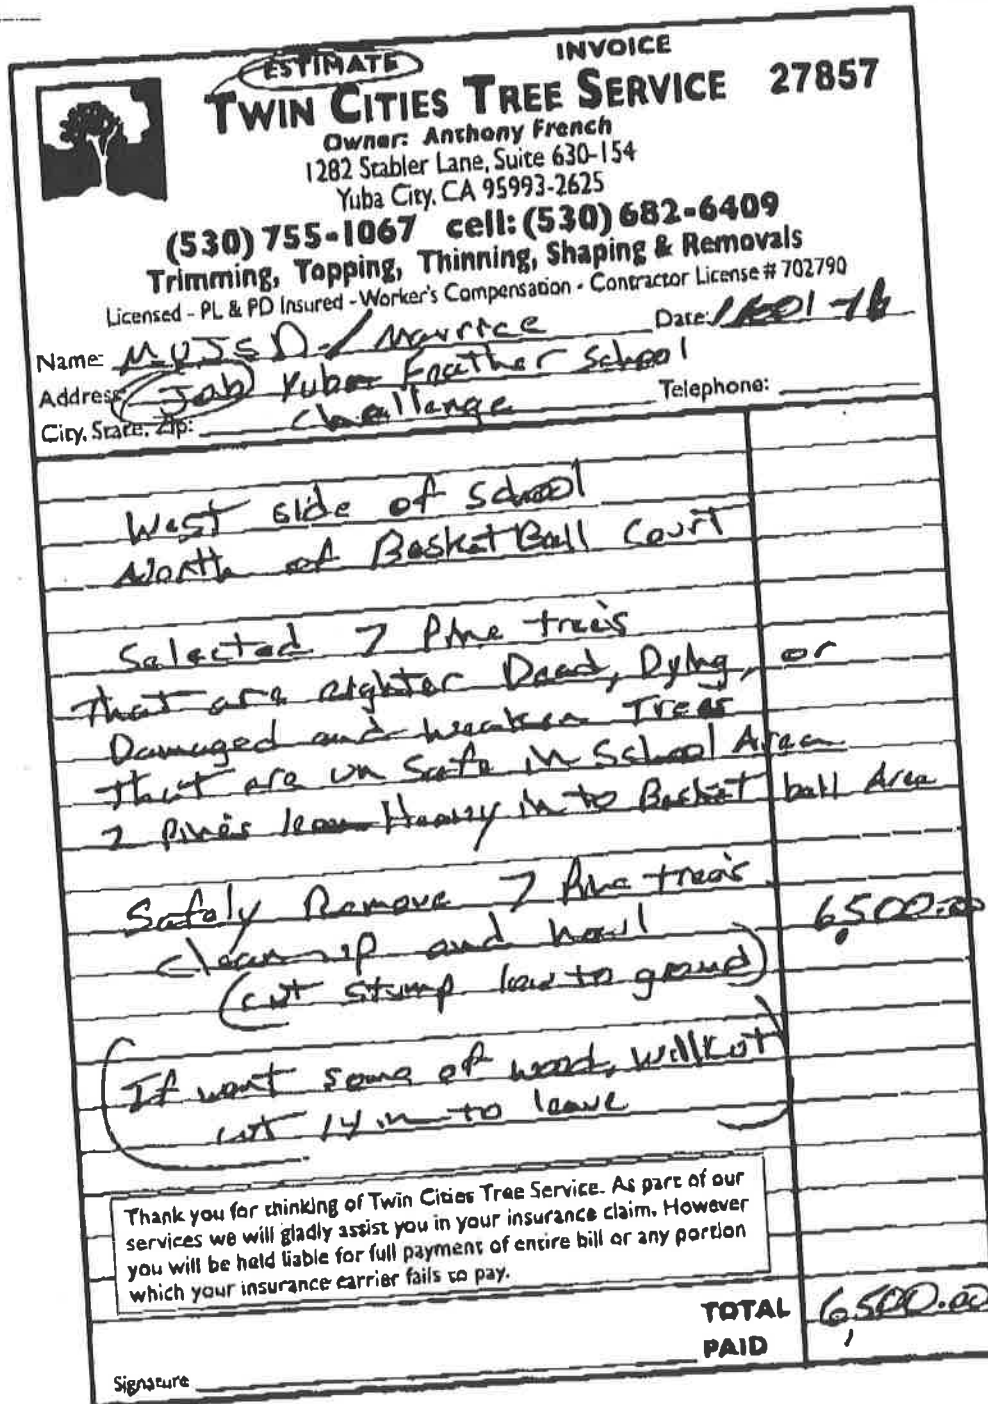 ESTIMATE INVOICE
TWIN CITIES TREE SERVICE 27857
Owner: Anthony French
1282 Stabler Lane, Suite 630-154
Yuba City, CA 95993-2625
(530) 755-1067 cell: (530) 682-6409
Trimming, Topping, Thinning, Shaping & Removals
Licensed - PL & PD Insured - Worker's Compensation - Contractor License # 702790
Name: M.U.J.S.D. / Maurice Date:
Address: Job Yuba Feather School
City, State, Zip: Challange Telephone:
West side of School
North of BasketBall Court
Selected 7 Pine tree's
that are eighter Dead, Dying, or
Damaged and weaken Trees
that are un safe in School Area
2 Pines lean Heavy in to Basket ball Area
Safely Remove 7 Pine tree's 6,500.00
clean-up and haul
(cut stump low to ground)
(If want some of wood, will cut
cut 14 in to leave)
Thank you for thinking of Twin Cities Tree Service. As part of our
services we will gladly assist you in your insurance claim. However
you will be held liable for full payment of entire bill or any portion
which your insurance carrier fails to pay.
TOTAL 6,500.00
PAID
Signature